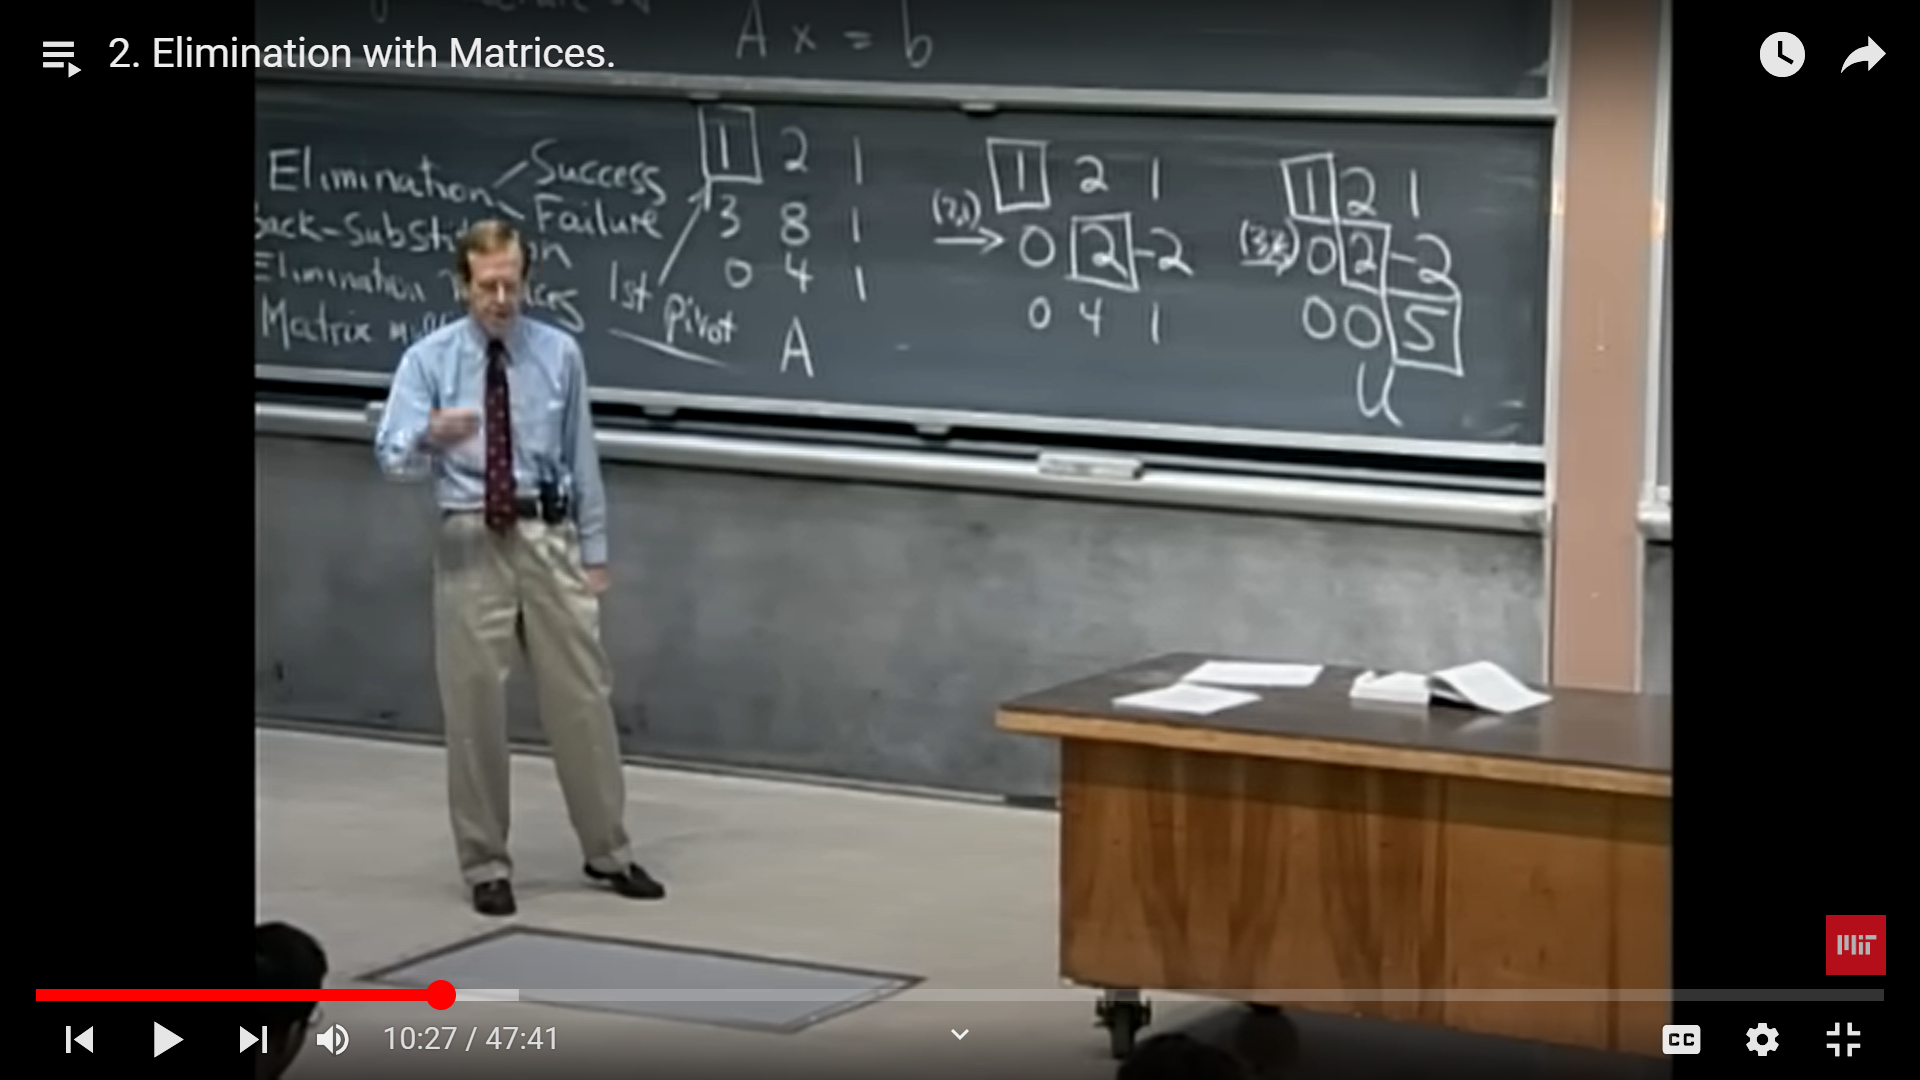 2. Elimination with Matrices.
A x = b
Elimination Success
Failure
Back-Substitution
Elimination
Matrix
1st pivot
1 2 1
3 8 1
0 4 1
A
(2,1)
1 2 1
0 2 -2
0 4 1
(3,2)
1 2 1
0 2 -2
0 0 5
U
MIT
10:27 / 47:41
CC